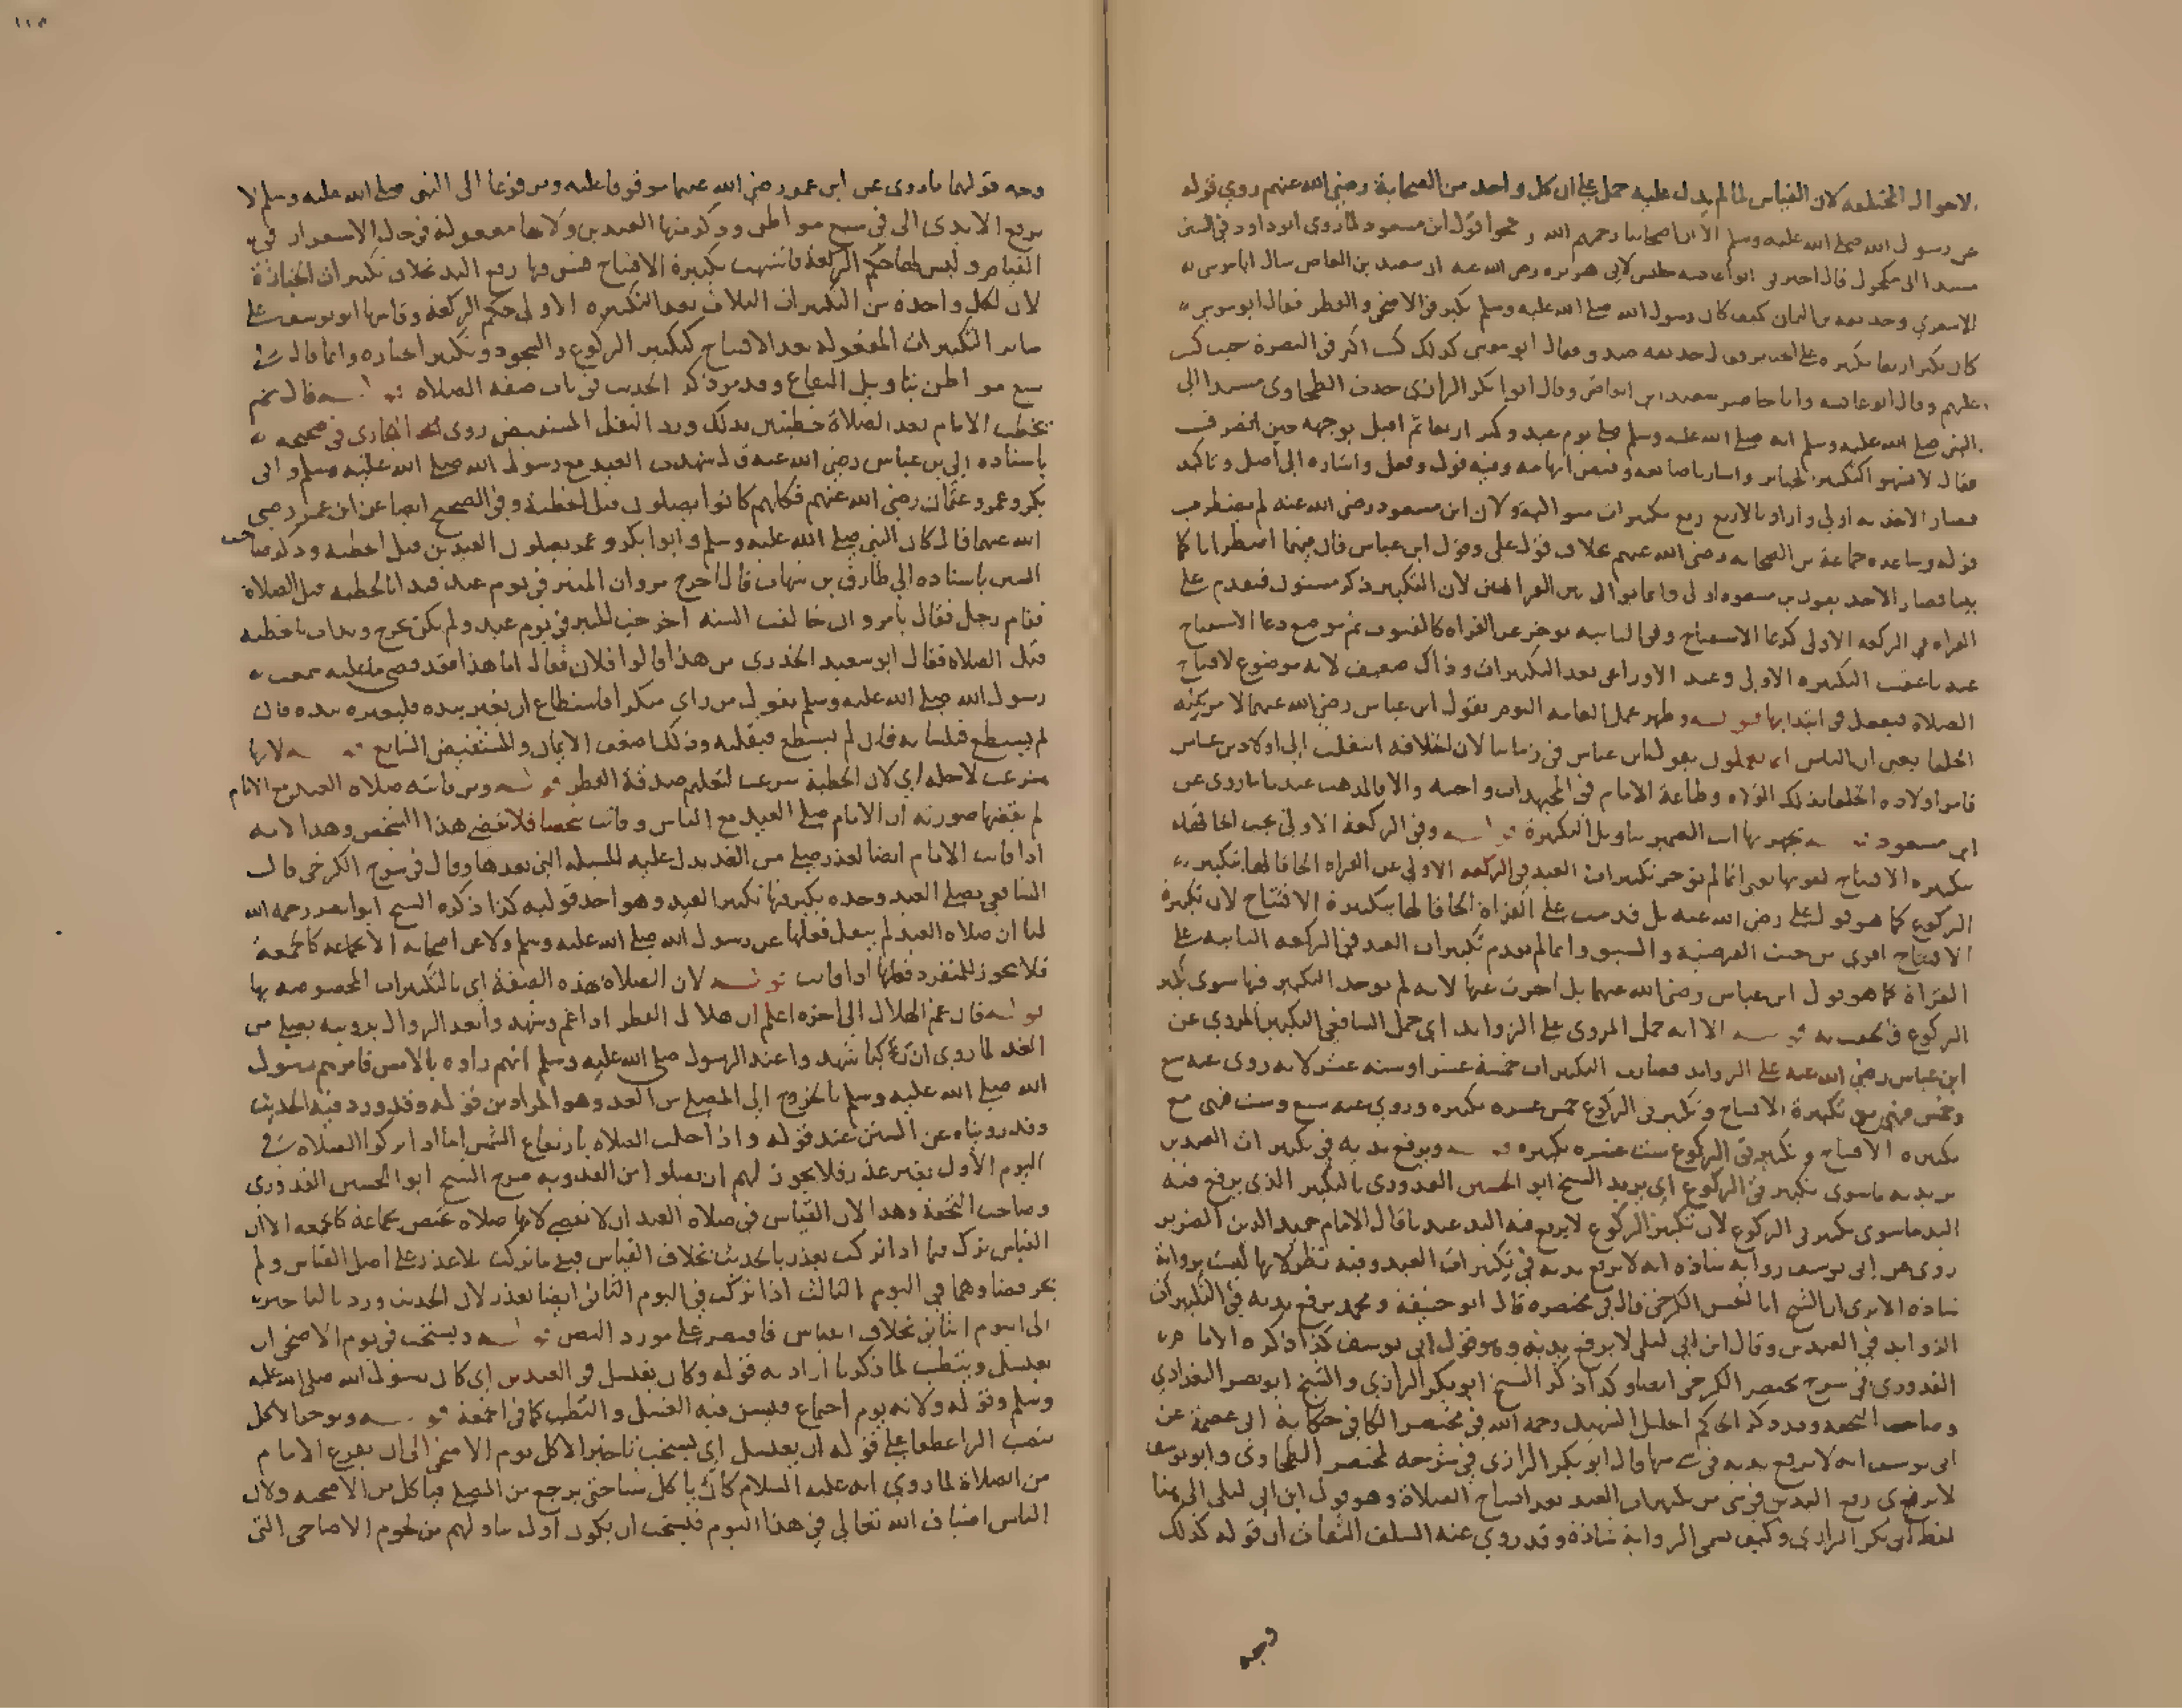 لاحوال المختلفه لان القياس لما لم يدل عليه حمل على ان كل واحد من الصحابة رضي الله عنهم روي قوله
عن رسول الله صلى الله عليه وسلم الا ان اصحابنا رحمهم الله رجحوا قول ابن مسعود لما روى ابو داود في السنن
مسندا الى مكحول قال اخبرني ابو عايشه جليس لابي هريره رضي الله عنه ان سعيد بن العاص سال ابا موسى
الاشعري وحذيفه بن اليمان كيف كان رسول الله صلى الله عليه وسلم يكبر في الاضحى والفطر فقال ابو موسى
كان يكبر اربعا تكبيره على الجنايز فقال حذيفه صدق فقال ابو موسى كذلك كنت اكبر في البصرة حيث كنت
عليهم وقال ابو عايشه وانا حاضر سعيد بن العاص وقال ابو بكر الرازي حدث الطحاوي مسندا الى
النبي صلى الله عليه وسلم انه صلى الله عليه وسلم صلى يوم عيد وكبر اربعا ثم اقبل بوجهه حين انصرف
فقال لا تنسوا كتكبير الجنايز واشار باصابعه وقبض ابهامه وفيه قول وفعل واشاره الى اصل وتاكيد
فصار الاخذ به اولى واراد بالاربع اربع تكبيرات متواليه ولان ابن مسعود رضي الله عنه لم يضطرب
قوله وساعده جماعة من الصحابه رضي الله عنهم بخلاف قول علي وقول ابن عباس فان فيهما اضطرابا كما
بينا فصار الاخذ بقول ابن مسعود اولى وانما يوالى بين القراءتين لان التكبير ذكر مسنون فيقدم على
القراه في الركعه الاولى كدعا الاستفتاح وفي الثانيه يوخر عن القراه كالقنوت ثم موضع دعا الاستفتاح
عندنا عقيب التكبيره الاولى وعند الاوزاعي بعد التكبيرات وذاك ضعيف لانه موضوع لافتتاح
الصلاة فيفعل في ابتدايها قوله وظهر عمل العامه اليوم بقول ابن عباس رضي الله عنهما لامر بنيه
الخلفا يعني ان الناس انما يعملون بقول ابن عباس في زماننا لان الخلافه انتقلت الى اولاد بن عباس
فامر اولاده الخلفا بذلك الولاه وطاعة الامام في المجتهدات واجبه والا فالمذهب عندنا ما روى عن
ابن مسعود قوله يجهر بها اى الضمير بتاويل التكبيرة قوله وفي الركعة الاولى يجب الحاقها
بتكبيره الافتتاح لقوتها يعني انما لم توخر تكبيرات العيد في الركعه الاولى عن القراه الحاقا لها بتكبير
الركوع كما هو قول علي رضي الله عنه بل قدمت على القراة الحاقا لها بتكبيرة الافتتاح لان تكبيرة
الافتتاح اقوى من حيث الفرضية والسبق وانما لم يقدم تكبيرات العيد في الركعه الثانيه على
القراة كما هو قول ابن عباس رضي الله عنهما بل اخرت عنها لانه لم يوجد التكبير فيها سوى تكبير
الركوع فالحقت به قوله الا انه حمل المروى على الزوايد اى حمل الشافعي التكبير المروي عن
ابن عباس رضي الله عنه على الزوايد فصارت التكبيرات خمسة عشر او ستة عشر لانه روى عنه تسع
وخمس فهي مع تكبيرة الافتتاح وتكبيرتي الركوع خمس عشره تكبيره وروي عنه سبع وست فهي مع
تكبيره الافتتاح وتكبيرتي الركوع ست عشره تكبيره قوله ويرفع يديه في تكبيرات العيدين
يريد به ما سوى تكبيرتي الركوع اي يريد الشيخ ابو الحسين القدوري بالتكبير الذي يرفع فيه
اليد ما سوى تكبيرتي الركوع لان تكبيرتي الركوع لا يرفع فيه اليد عندنا قال الامام حميد الدين الضرير
روى عن ابي يوسف رواية شاذه انه لا يرفع يديه في تكبيرات العيد وفيه نظر لانها ليست برواية
شاذه الا يرى ان الشيخ ابا الحسن الكرخي قال في مختصره قال ابو حنيفة ومحمد يرفع يديه في التكبيرات
الزوايد في العيدين وقال ابن ابي ليلى لا يرفع يديه وهو قول ابي يوسف كذا ذكره الامام
القدوري في شرح مختصر الكرخي ايضا وكذا ذكر الشيخ ابو بكر الرازي والشيخ ابو نصر البغدادي
وصاحب التحفه وقد ذكر الحاكم الجليل الشهيد رحمه الله في مختصر الكافي حكاية ابي عصمة عن
ابي يوسف انه لا يرفع يديه في شي منها وقال ابو بكر الرازي في شرحه لمختصر الطحاوي وابو يوسف
لا يرى رفع اليدين في شي من تكبيرات العيد بعد افتتاح الصلاة وهو قول ابن ابي ليلى الى هنا
لفظ ابي بكر الرازي وكيف يسمى الرواية شاذة وقد روي عنه السلف الثقات ان قوله كذلك
وجه
١١٣
وجه قولهما ما روى عن ابن عمر رضي الله عنهما موقوفا عليه ومرفوعا الى النبي صلى الله عليه وسلم لا
يرفع الايدي الا في سبع مواطن وذكر منها العيدين ولانها مفعولة في حال الاستقرار في
القيام وليس لها حكم الركعة فاشبهت تكبيرة الافتتاح فيسن فيها رفع اليد بخلاف تكبيرات الجنازة
لان لكل واحدة من التكبيرات الثلاث بعد التكبيره الاولى حكم الركعة وقاسها ابو يوسف على
سائر التكبيرات المفعوله بعد الافتتاح كتكبير الركوع والسجود وتكبير الجنازه وانما قال في
سبع مواطن بتاويل البقاع وقد مر ذكر الحديث في باب صفة الصلاه قوله قال ثم
يخطب الامام بعد الصلاة خطبتين بذلك ورد النقل المستفيض روى البخاري في صحيحه
باسناده الى بن عباس رضي الله عنه قال شهدت العيد مع رسول الله صلى الله عليه وسلم وابي
بكر وعمر وعثمان رضي الله عنهم فكلهم كانوا يصلون قبل الخطبة وفي الصحيح ايضا عن ابن عمر رضي
الله عنهما قال كان النبي صلى الله عليه وسلم وابو بكر وعمر يصلون العيدين قبل الخطبه وذكر صاحب
السنن باسناده الى طارق بن شهاب قال اخرج مروان المنبر في يوم عيد فبدا بالخطبه قبل الصلاة
فقام رجل فقال يا مروان خالفت السنه اخرجت المنبر في يوم عيد ولم يكن يخرج وبدات بالخطبه
قبل الصلاة فقال ابو سعيد الخدري من هذا قالوا فلان فقال اما هذا فقد قضى ما عليه سمعت
رسول الله صلى الله عليه وسلم يقول من راى منكرا فاستطاع ان يغيره بيده فليغيره بيده فان
لم يستطع فبلسانه فان لم يستطع فبقلبه وذلك اضعف الايمان والمستفيض الشايع قوله لانها
شرعت لاجله اي لان الخطبة شرعت لتعليم صدقة الفطر قوله ومن فاتته صلاه العيد مع الامام
لم يقضها صورته ان الامام صلى العيد مع الناس وفاتت شخصا فلا يقضي هذا الشخص وهذا لانه
اذا فات الامام ايضا لعذر صلى من الغد يدل عليه المسئله التي بعدها وقال في شرح الكرخي قال
الشافعي يصلي العيد وحده يكبر فيها تكبير العيد وهو احد قوليه كذا ذكره الشيخ ابو نصر رحمه الله
لنا ان صلاة العيد لم ينقل فعلها عن رسول الله صلى الله عليه وسلم ولا عن اصحابه الا بجماعه كالجمعة
فلا يجوز للمنفرد فعلها اذا فاتت قوله لان الصلاة بهذه الصفة اى بالتكبيرات المخصوصه بها
قوله فان غم الهلال الى اخره اعلم ان هلال الفطر اذا غم وشهدوا بعد الزوال برويته يصلي من
الغد لما روى ان ركبا شهدوا عند الرسول صلى الله عليه وسلم انهم راوه بالامس فامرهم رسول
الله صلى الله عليه وسلم بالخروج الى المصلى من الغد وهو المراد من قوله وقد ورد فيه الحديث
وقد رويناه عن السنن عند قوله واذا حلت الصلاه بارتفاع الشمس اما اذا تركوا الصلاه في
اليوم الاول بغير عذر فلا يجوز لهم ان يصلوا من الغد وبه صرح الشيخ ابو الحسين القدوري
وصاحب التحفة وهذا لان القياس في صلاة العيد ان لا تقضى لانها صلاه تختص بجماعة كالجمعه الا ان
القياس ترك فيما اذا تركت بعذر بالحديث بخلاف القياس فبقي ما تركت بلا عذر على اصل القياس ولم
الى اليوم الثاني بخلاف القياس فاقتصر على مورد النص قوله ويستحب في يوم الاضحى ان
يغتسل ويتطيب لما ذكرنا اراد به قوله وكان يغتسل في العيدين اي كان رسول الله صلى الله عليه
وسلم وقوله ولانه يوم اجتماع فيسن فيه الغسل والتطيب كما في الجمعة قوله ويوخر الاكل
بنصب الراء عطفا على قوله ان يغتسل اي يستحب تاخير الاكل يوم الاضحى الى ان يفرغ الامام
من الصلاة لما روي انه عليه السلام كان لا ياكل شيا حتى يرجع من المصلى فياكل من الاضحيه ولان
الناس اضياف الله تعالى في هذا اليوم فيستحب ان يكون اول تناولهم من لحوم الاضاحى التي